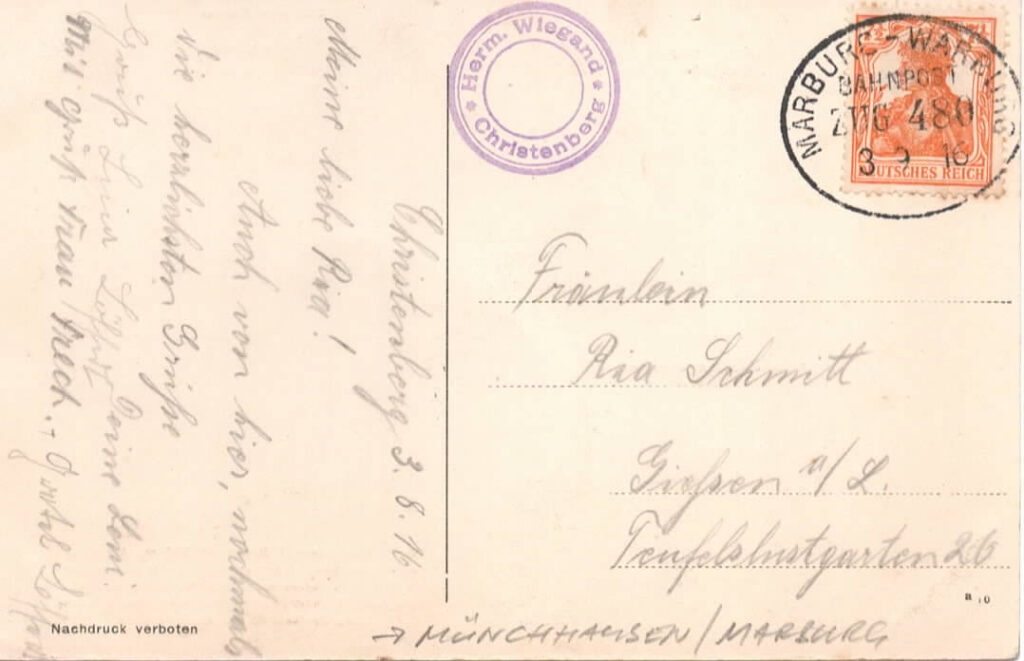 Christenberg 3. 8. 16
Meine liebe Ria!
Auch von hier, nochmals
die herzlichsten Grüße
Deine Leni.
Mit grüßt Frau
Herm. Wiegand
Christenberg
MARBURG - WARBURG
BAHNPOST
ZUG 480
3 9 16
DEUTSCHES REICH
Fräulein
Ria Schmitt
Giessen a/L.
Teufelslustgarten 26
a 10
Nachdruck verboten
→ MÜNCHHAUSEN / MARBURG